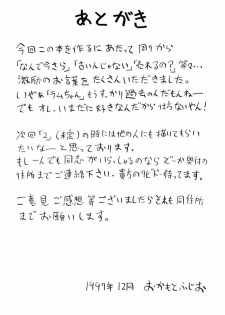 あとがき
今回この本を作るにあたって周りから
「なんで今さら」「古いんじゃない」「売れるの?」等々…
激励のお言葉をたくさんいただきました。
いやぁ「ラムちゃん」もうすっかり過去の人だもんねー
でもオレ、いまだに好きなんだから仕方ないやん!
次回「2」(未定)の時には他の人にも描いてもらい
たいなーと思っております。
もし一人でも同志がいらっしゃるのなら どーか奥付の
住所までご連絡下さい、貴方のリビドー待ってます。
ご意見ご感想等ございましたらそれも同住所
までお願いします。
1997年12月 おかもとふじお